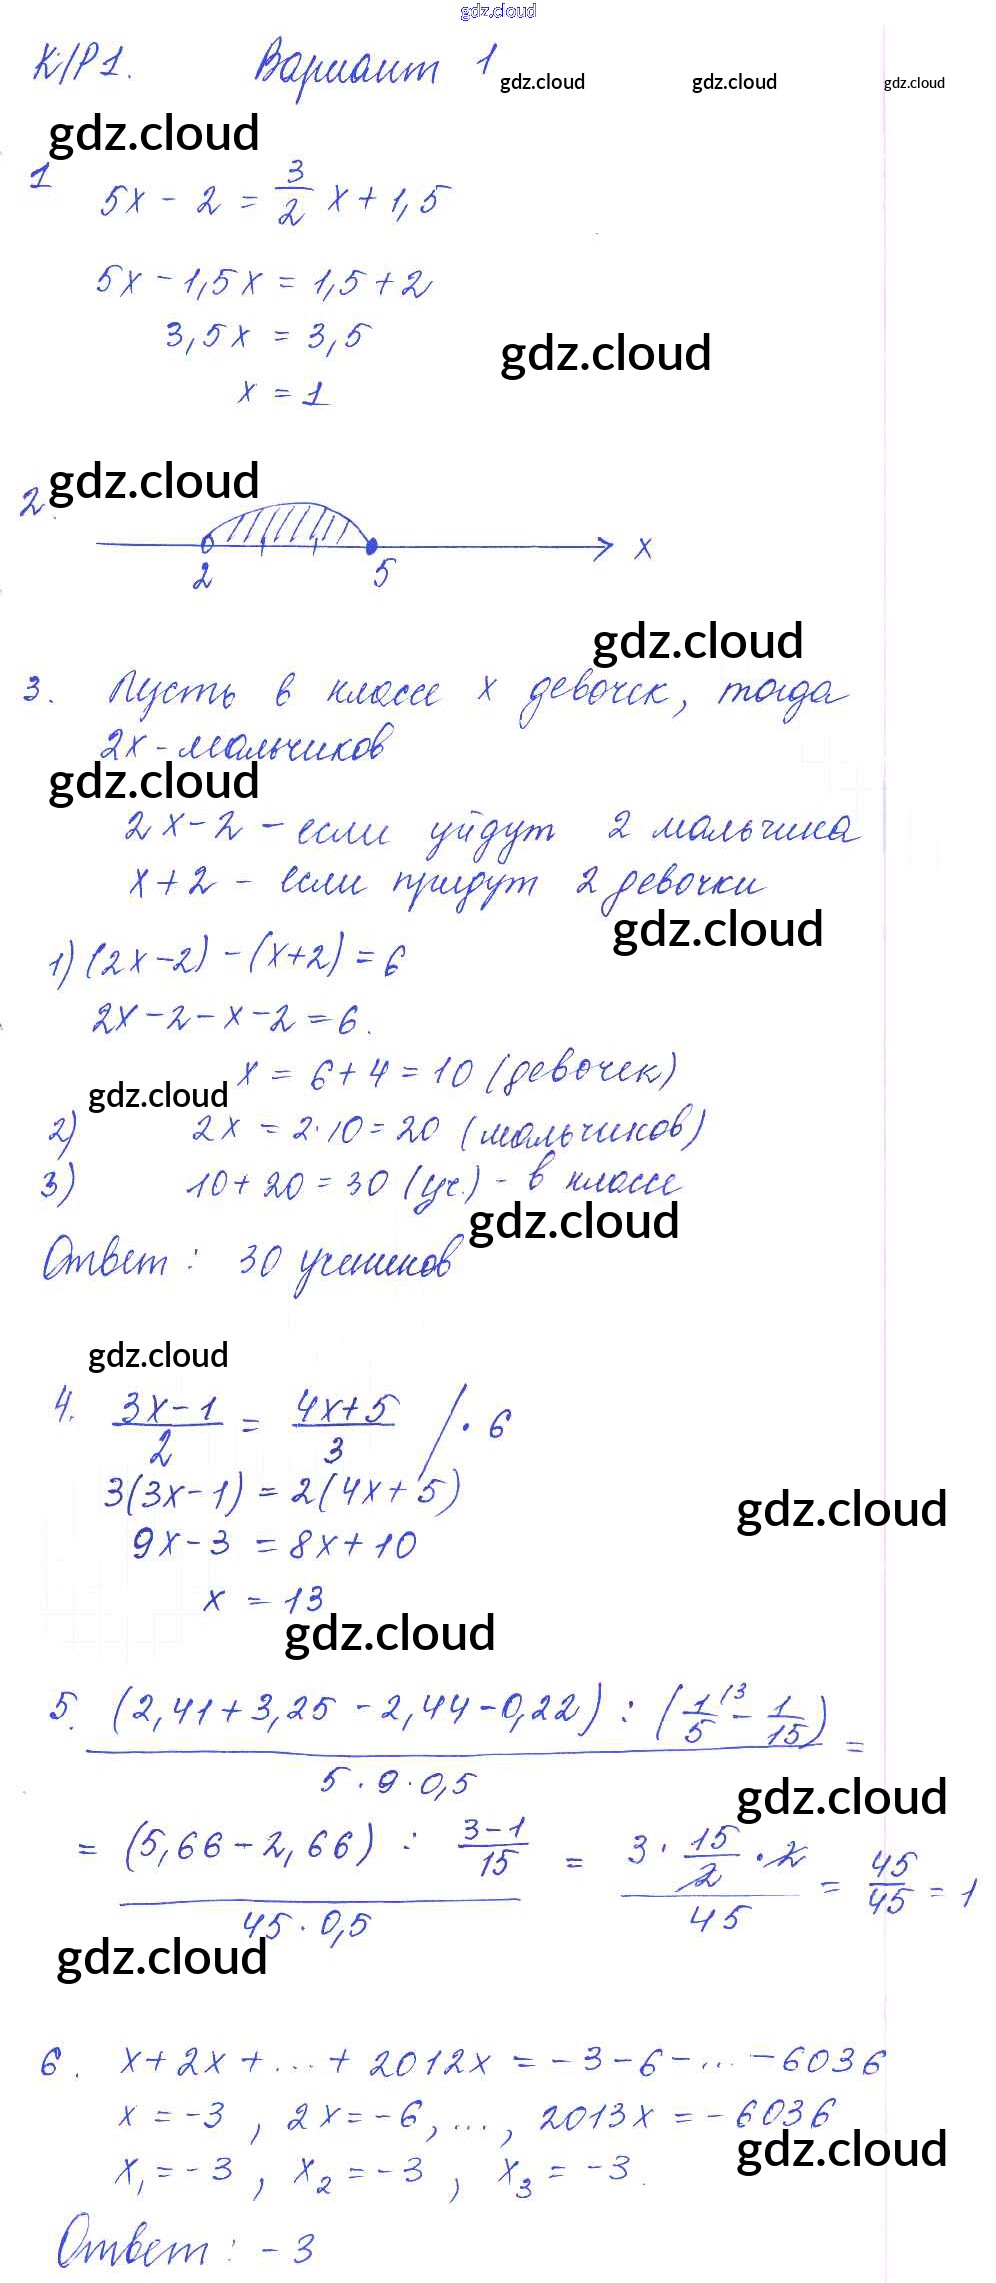 gdz.cloud
К/Р1. Вариант 1
gdz.cloud gdz.cloud gdz.cloud
gdz.cloud
1 5x - 2 = 3/2 x + 1,5
5x - 1,5x = 1,5 + 2
3,5x = 3,5
gdz.cloud
x = 1
gdz.cloud
2.
2 5 x
gdz.cloud
3. Пусть в классе x девочек, тогда
2x - мальчиков
gdz.cloud
2x - 2 - если уйдут 2 мальчика
x + 2 - если придут 2 девочки
gdz.cloud
1) (2x - 2) - (x + 2) = 6
2x - 2 - x - 2 = 6.
x = 6 + 4 = 10 (девочек)
gdz.cloud
2) 2x = 2·10 = 20 (мальчиков)
3) 10 + 20 = 30 (уч.) - в классе
gdz.cloud
Ответ: 30 учеников
gdz.cloud
4. (3x - 1)/2 = (4x + 5)/3 / · 6
3(3x - 1) = 2(4x + 5)
gdz.cloud
9x - 3 = 8x + 10
x = 13
gdz.cloud
5. (2,41 + 3,25 - 2,44 - 0,22) : (1/5 \3 - 1/15) =
5 · 9 · 0,5
gdz.cloud
= (5,66 - 2,66) : (3 - 1)/15 = 3 · 15/2 · 2 = 45/45 = 1
45 · 0,5 45
gdz.cloud
6. x + 2x + ... + 2012x = -3 - 6 - ... - 6036
x = -3, 2x = -6, ..., 2013x = -6036
gdz.cloud
x₁ = -3, x₂ = -3, x₃ = -3.
Ответ: -3